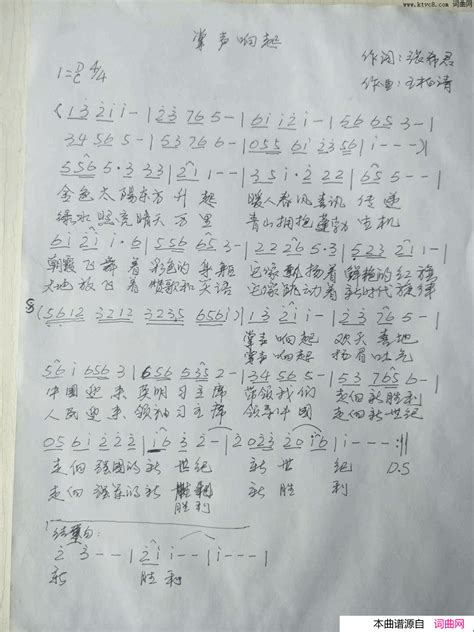 www.ktvc8.com 词曲网
掌声响起
作词:张希君
作曲:王柏涛
1=D/C 4/4
(1 3 2 i i - | 2 3 7 6 5 - | 6 i i 2 i - | 5 6 6 5 3 - |
3 4 5 6 5 - | 5 3 7 6 6 - | 0 5 5 6 i 2 3 5 6 | i - - -)
5 5 6 5 · 3 3 3 | 2 1 1 - - | 3 5 i · 2 2 2 | 6 5 5 - - |
金色太阳东方升起 暖人春风喜讯传递
绿水照亮晴天万里 青山拥抱蓬勃生机
6 i 2 i i · 6 | 5 5 6 6 5 3 - | 2 2 2 6 5 · 3 | 5 2 3 2 1 1 - |
朝霞飞舞着彩色的
大地放飞着赞歌和天语 新时代旗
(5 6 1 2 3 2 1 2 3 2 3 5 6 5 6 i) | 1 3 2 i i - | 2 3 7 6 5 - |
掌声响起 欢天喜地
掌声响起 扬眉吐气
5 6 i 6 5 6 3 | 6 5 6 5 3 5 2 - | 3 4 5 6 5 - | 5 3 7 6 5 6 - |
中国迎来英明习主席 带领我们 走向新胜利
人民迎来领袖习主席 领导中国 走向新世纪
0 5 6 i 2 2 2 | i 6 3 2 - | 2 0 2 3 2 0 i 6 | i - - - :||
走向强国的新世纪 新世纪 D.S
走向强军的新胜利 新胜利
胜利
结束句:
2 3 - - | 2 i i - - | i - - - |
新 胜利
本曲谱源自 词曲网